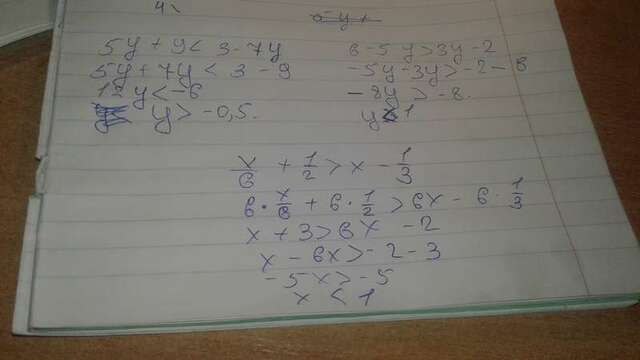 4.
5y + 9 < 3 - 7y
5y + 7y < 3 - 9
12y < -6
y > -0,5.
6 - 5y > 3y - 2
-5y - 3y > -2 - 6
-8y > -8.
y < 1
x/6 + 1/2 > x - 1/3
6 · x/6 + 6 · 1/2 > 6x - 6 · 1/3
x + 3 > 6x - 2
x - 6x > -2 - 3
-5x > -5
x < 1